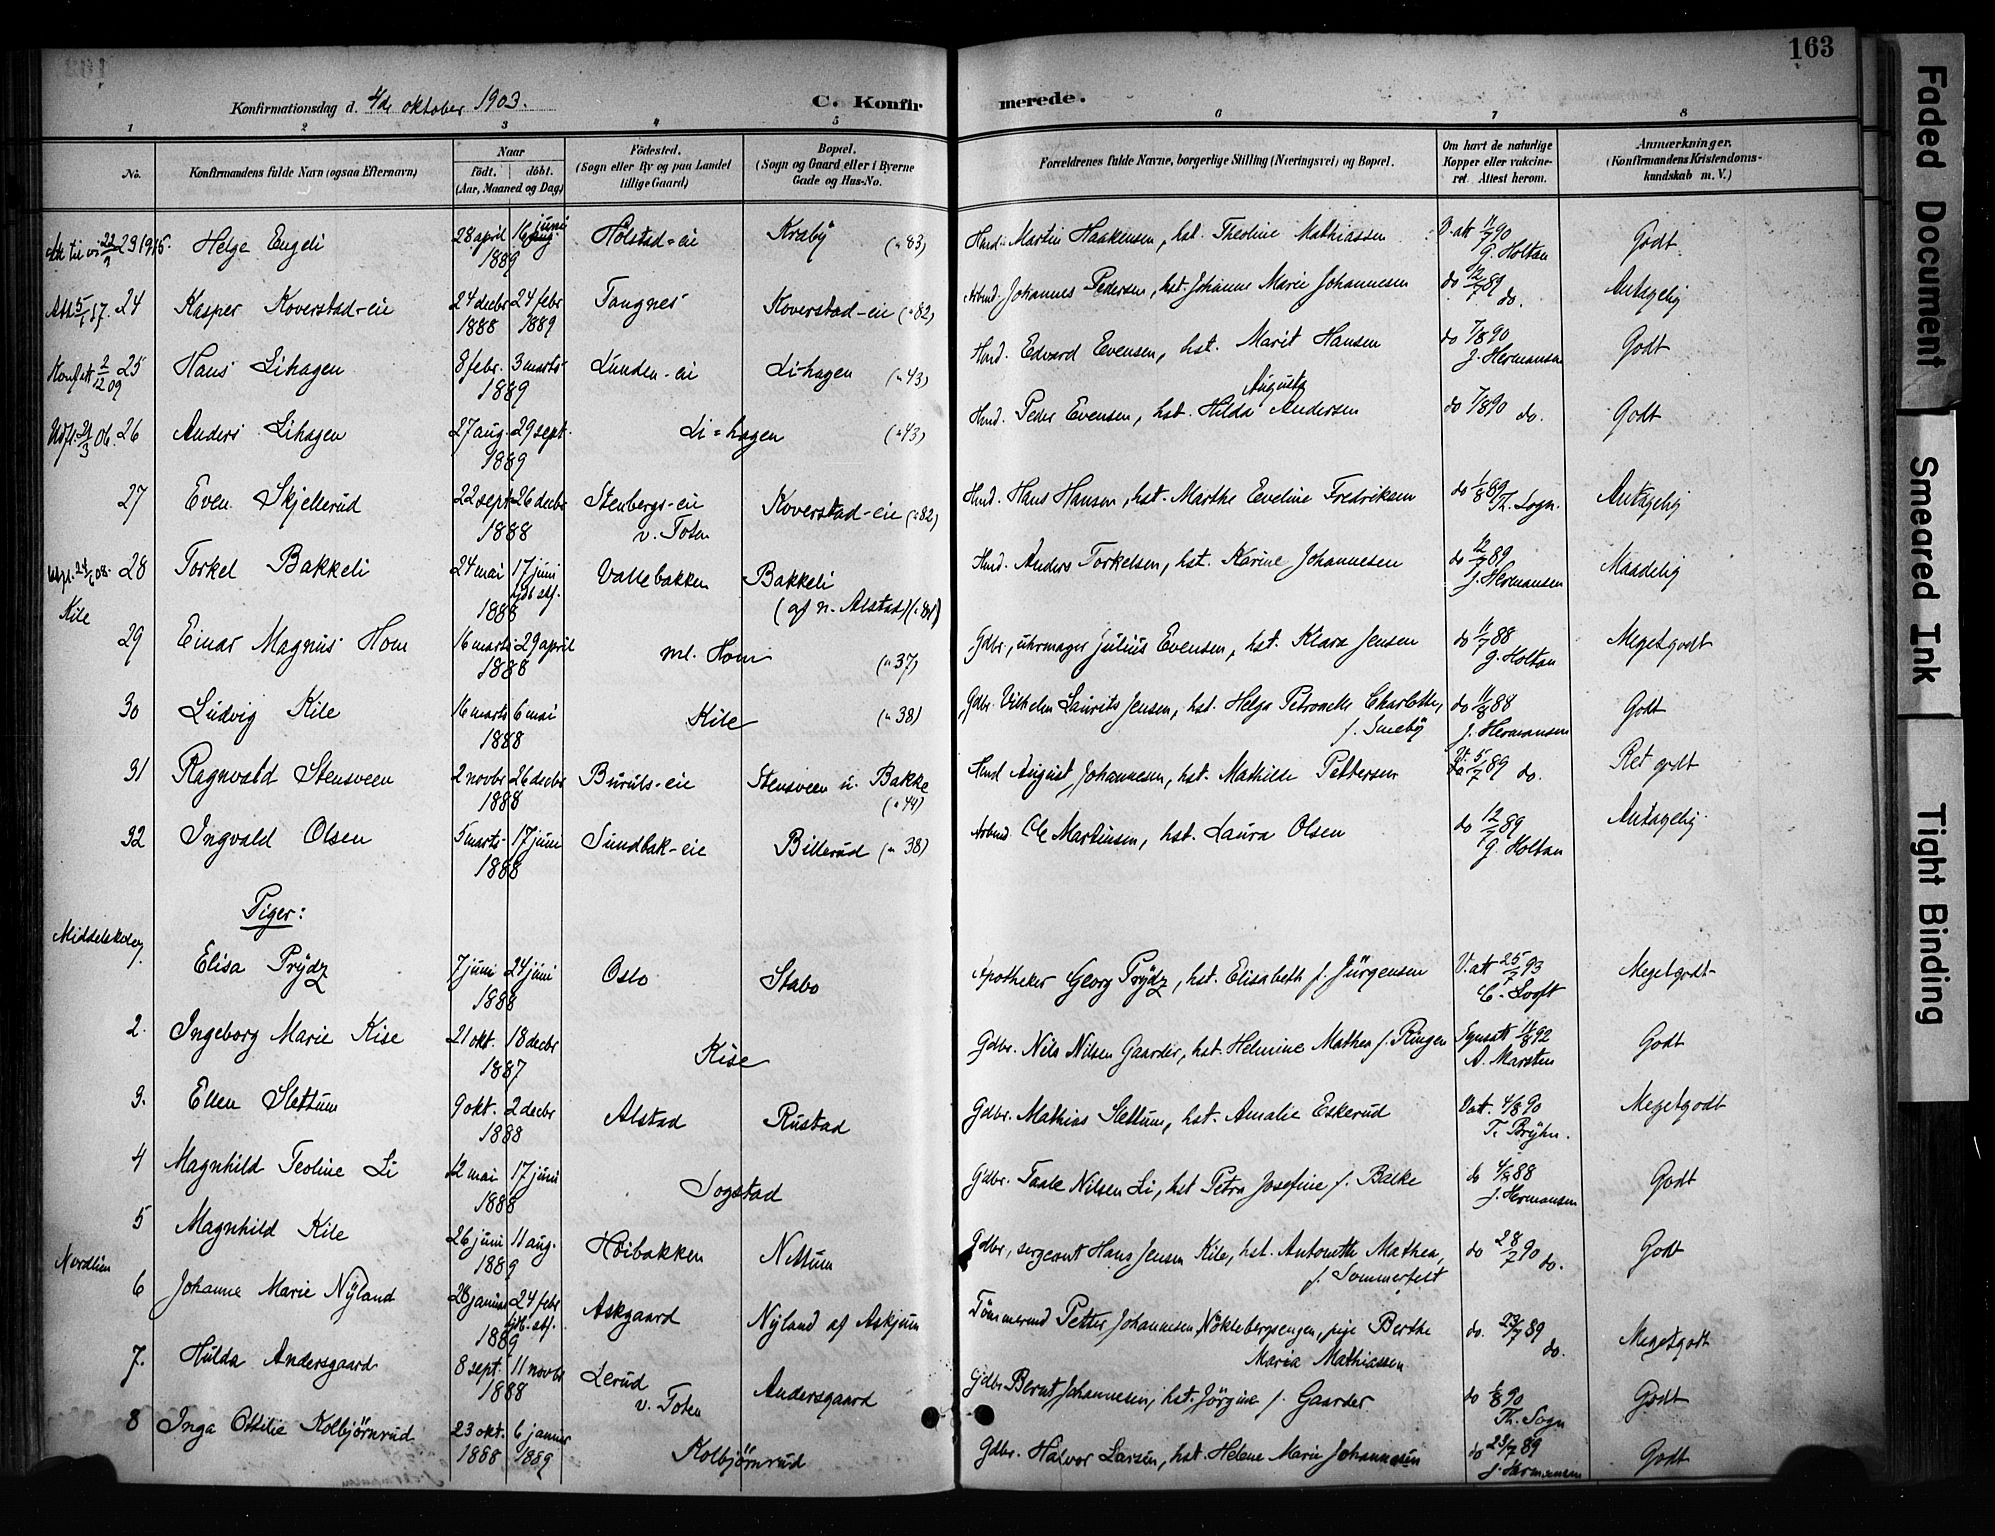 163
Konfirmationsdag d. 4de oktober 1903.
C. Konfirmerede.
1 2 3 4 5 6 7 8
No.
Konfirmandens fulde Navn (ogsaa Efternavn)
Naar
födt. döbt.
(Aar, Maaned og Dag)
Födested.
(Sogn eller By og paa Landet
tillige Gaard)
Bopæl.
(Sogn og Gaard eller i Byerne
Gade og Hus-No.
Forældrenes fulde Navne, borgerlige Stilling (Næringsvei) og Bopæl.
Om havt de naturlige
Kopper eller vakcine-
ret. Attest herom.
Anmærkninger.
(Konfirmandens Kristendoms-
kundskab m. V.)
23 Helge Engeli 28 april 16 juni 1889 Hölstad-eie Kraby (" 83) Hmd. Martin Haakensen, hst. Theoline Mathiassen V. att 11/7 90 G. Holtan Godt
Att 5/1 17. 24 Kasper Koverstad-eie 24 decbr 1888 24 febr 1889 Tangnes Koverstad-eie (" 82) Arbmd. Johannes Pedersen, hst. Johanne Marie Johannesen do 12/7 89 do. Antagelig
Konf att 2/12 09 25 Hans Lihagen 8 febr. 3 marts 1889 Lunden-eie Li-hagen (" 43) Hmd. Edvard Evensen, hst. Marit Hansen do 7/8 90 J. Hermansen Godt
Udfl. 21/3 06. 26 Anders Lihagen 27 aug. 29 sept. 1889 Li-hagen (" 43) Hmd. Peder Evensen, hst. Hilda Augusta Andersen do 7/8 90 do. Godt
27 Even Skjellerud 22 sept 26 decbr 1888 Stenbergs-eie v. Toten Koverstad-eie (" 82) Hmd. Hans Hansen, hst. Marthe Eveline Fredriksen do 1/8 89 Th. Sogn. Antagelig
28 Torkel Bakkeli 24 mai 17 juni 1888 Vallebakken Bakkeli (af n. Alstad) (" 81) Hmd. Anders Torkelsen, hst. Karine Johannesen do 12/7 89 J. Hermansen Maadelig
Kile
29 Einar Magnus Hom 16 marts 29 april 1888 ml. Hom (" 37) Gdbr., uhrmager Julius Evensen, hst. Klara Jensen do 11/7 88 G. Holtan Megetgodt
30 Ludvig Kile 16 marts 6 mai 1888 Kile (" 38) Gdbr. Vilhelm Laurits Jensen, hst. Helga Petronelle Charlotte, f. Smeby do 11/8 88 J. Hermansen Godt
31 Ragnvald Stensveen 2 novbr 26 decbr 1888 Buruls-eie Stensveen u. Bakke (" 44) Hmd August Johannesen, hst. Mathilde Pettersen 5/7 89 do. Ret godt
32 Ingvald Olsen 5 marts 17 juni 1888 Sundbak-eie Billerud (" 38) Arbmd. Ole Martinsen, hst. Laura Olsen do 12/7 89 G. Holtan Antagelig
Piger:
Middelskoleex.
Elisa Prydz 7 juni 24 juni 1888 Oslo Stabo Apotheker Georg Prydz, hst. Elisabeth f. Jürgensen V. att 25/7 93 C. Looft Megetgodt
2. Ingeborg Marie Kise 21 okt. 18 decbr 1887 Kise Gdbr. Nils Nilsen Gaarder, hst. Helmine Mathea f. Ringen Synsatt 11/8 92 A. Marsten Godt
3. Ellen Slettum 9 okt. 2 decbr 1888 Alstad Rustad Gdbr. Mathias Slettum, hst. Amalie Eskerud Vatt. 4/8 90 T. Bryhn. Megetgodt
4 Magnhild Teoline Li 12 mai 17 juni 1888 Sogstad Gdbr. Taale Nilsen Li, hst Petra Josefine f. Balke do 4/8 88 J. Hermansen Godt
5 Magnhild Kile 26 juni 11 aug. 1889 Höibakken Nettum Gdbr, sergeant Hans Jensen Kile, hst. Antonette Mathea, f. Sommerfelt do 28/7 90 do. Godt
Nordlien
6 Johanne Marie Nyland 28 januar 24 febr 1889 Askgaard Nyland af Askjum Tömmermd Petter Johannesen Nöklebergsengen, pige Berthe Maria Mathiassen do. 23/7 89 do. Megetgodt
7. Hulda Andersgaard 8 sept. 11 novbr 1888 Lerud v. Toten Andersgaard Gdbr Bernt Johannesen, hst. Jörgine f. Gaarder do 1/8 90 Th. Sogn Godt
8 Inga Ottilie Kolbjörnrud 23 okt. 1888 6 januar 1889 Kolbjörnrud Gdbr. Halvor Larsen, hst. Helene Marie Johannesen do 23/7 89 J. Hermansen Godt
Faded Document
Smeared Ink
Tight Binding